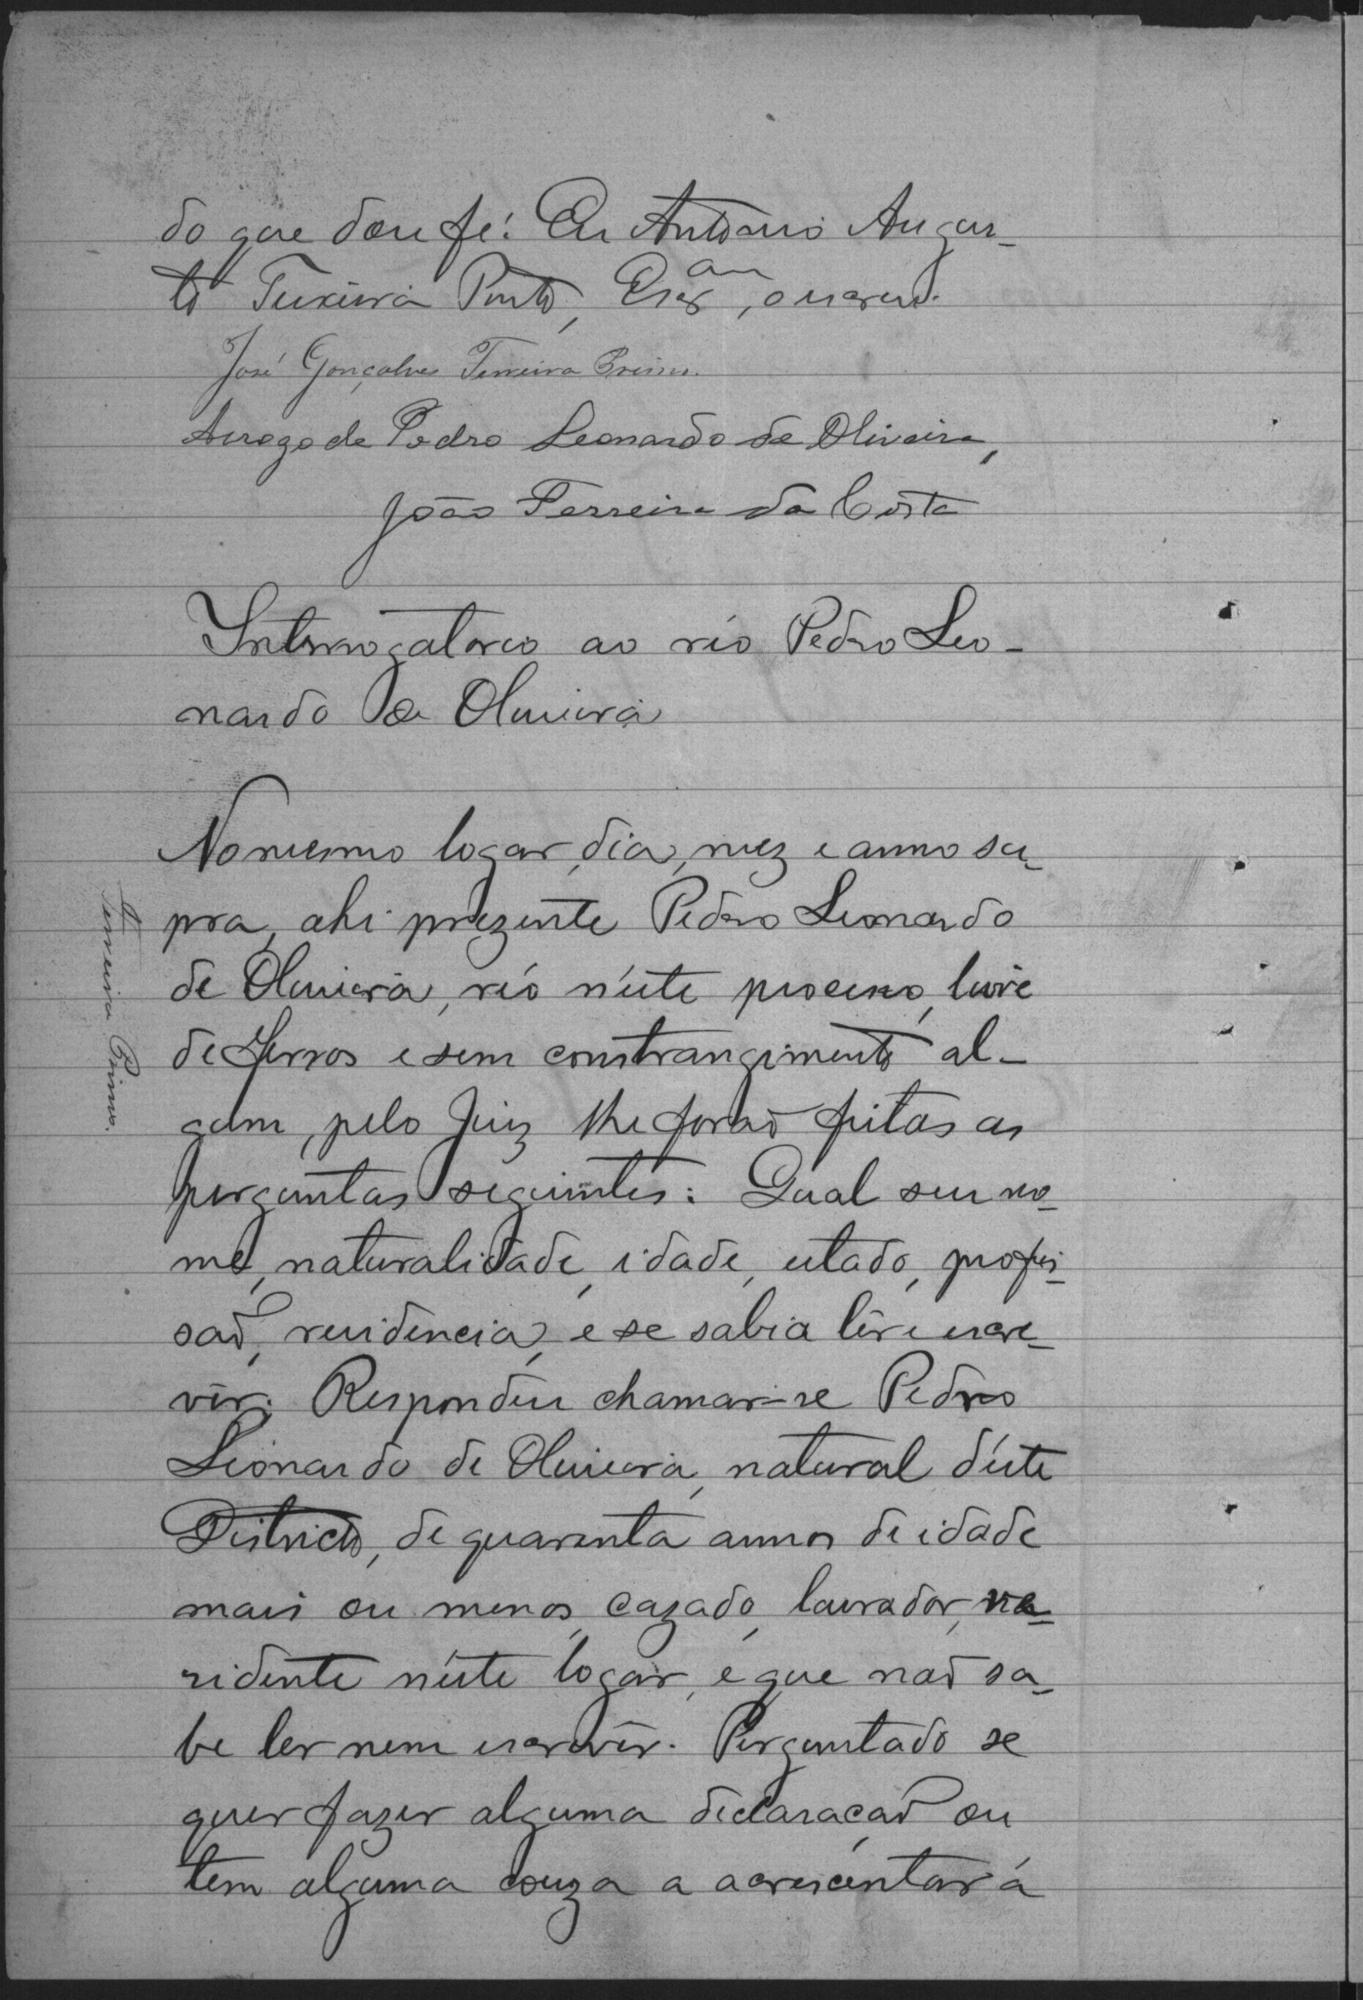 do que dou fé: Eu Antonio Augus-
to Teixeira Pinto, Escr am, o escrevi.
José Gonçalves Ferreira Primo.
Arogo de Pedro Leonardo de Oliveira,
João Ferreira da Costa
Interrogatorio ao réo Pedro Leo-
nardo de Oliveira
No mesmo logar, dia, mez e anno su-
pra, ahi prezente Pedro Leonardo
de Oliveira, réo néste processo, livre
de ferros e sem constrangimento al-
gum, pelo Juiz lhe forão feitas as
perguntas seguintes: Qual seu no-
me, naturalidade, idade, estado, profis-
saõ, residencia, e se sabia lêr e escre-
vêr. Respondeu chamar-se Pedro
Leonardo de Oliveira, natural déste
Districto, de quarenta annos de idade
mais ou menos, cazado, lavrador, re-
zidente néste logar, e que naõ sa-
be ler nem escrevêr. Perguntado se
quer fazer alguma declaraçaõ ou
tem alguma couza a acrescentar á
Ferreira Primo.